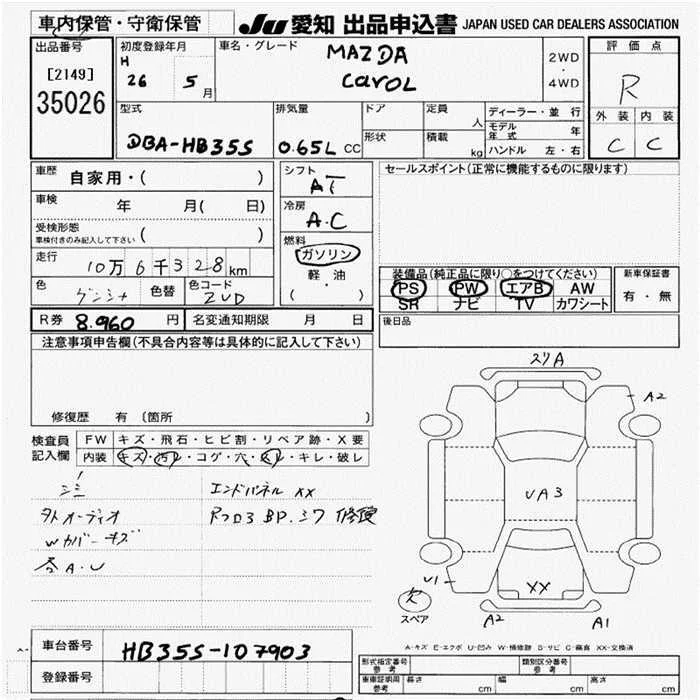 車内保管・守衛保管
Ju 愛知 出品申込書 JAPAN USED CAR DEALERS ASSOCIATION
出品番号
[2149]
35026
初度登録年月
H
26 5 月
車名・グレード
MAZDA
CAROL
2WD
・
4WD
評価点
R
外装 内装
C C
型式
DBA-HB35S
排気量
0.65L CC
ドア
形状
定員 人
積載 kg
ディーラー・並行
モデル年式 年
ハンドル 左・右
車歴 自家用・( )
車検 年 月( 日)
受検形態
車検付きのみ記入して下さい ( )
走行
10万 6千 328 km
色
色替
色コード
ZUD
シフト
AT
冷房
A.C
燃料
ガソリン
軽油
( ・ )
セールスポイント(正常に機能するものに限ります)
装備品(純正品に限り○をつけてください)
PS PW エアB AW
SR ナビ TV カワシート
新車保証書
有・無
R券 8.960 円
名変通知期限 月 日
後日品
注意事項申告欄(不具合内容等は具体的に記入して下さい)
修復歴 有 〔箇所 〕
検査員
記入欄
FW キズ・飛石・ヒビ割・リペア跡・X要
内装 キズ・汚レ・コゲ・穴・スレ・キレ・破レ
エンドパネル XX
外オーディオ
Wカバーキズ
各A.U
スリA
A2
UA3
U1
XX
A2
A1
スペア
A-キズ E-エクボ U-凹み W-補修跡 S-サビ C-腐食 XX-交換済
車台番号
HB35S-107903
登録番号
形式指定番号
参考
類別区分番号
参考
車庫証明用
参考
長さ cm
幅 cm
高さ cm